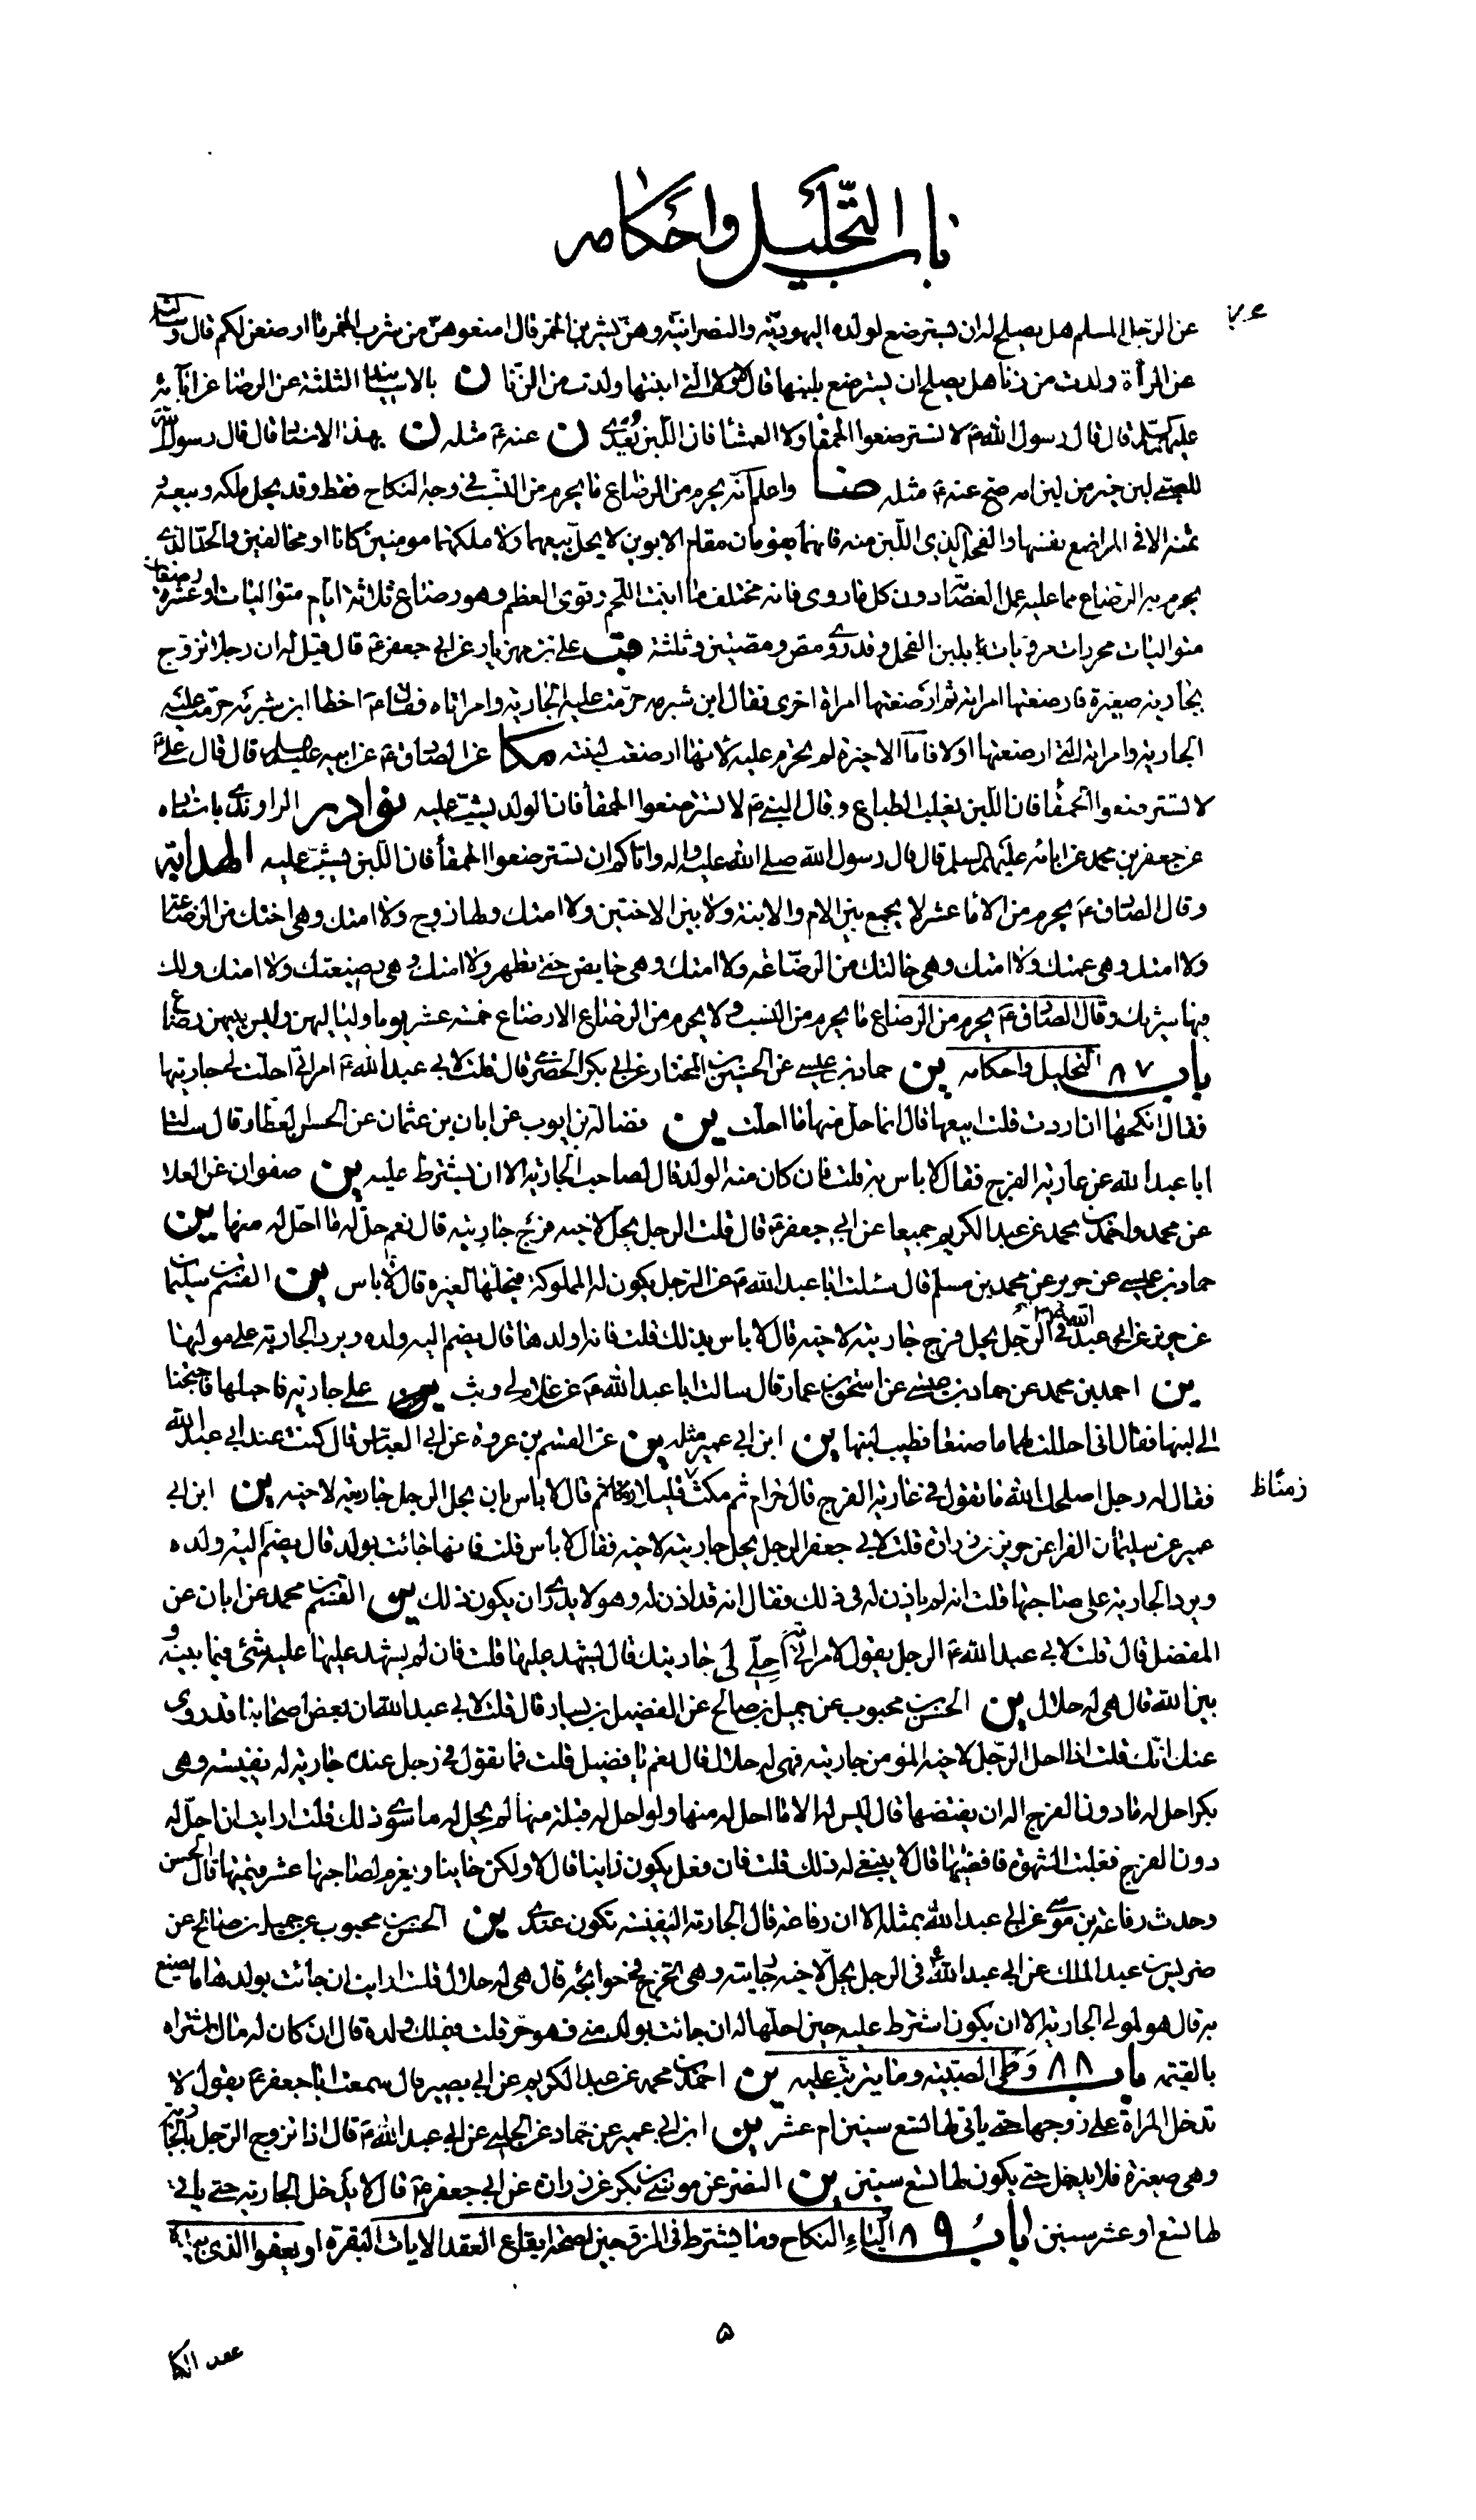 باب التحليل واحكامه
عن الرجل المسلم هل يصلح له ان يسترضع لولده اليهودية والنصرانية وهن يشربن الخمر قال امنعوهن من شرب الخمر ما ارضعن لكم قال وسالته
عن المرأة ولدت من زنا هل يصلح ان يسترضع بلبنها قال لا ولا التي ابنتها ولدت من الزنا ن بالاسانيد الثلثة عن الرضا عن آبائه
عليهم السلم قال قال رسول الله ص لا تسترضعوا الحمقا ولا العمشا فان اللبن يعدي ن عنه ع مثله ن بهذا الاسناد قال قال رسول الله
للصبي لبن خير من لبن امه صح عنه ع مثله ضا واعلم انه يحرم من الرضاع ما يحرم من النسب في وجه النكاح فقط وقد يحل ملكه وبيعه
ثمنه الا في المراضع نفسها والفحل الذي اللبن منه فانهما يقومان مقام الابوين لا يحل بيعهما ولا ملكهما مومنين كانا او مخالفين والحد الذي
يحرم به الرضاع مما عليه عمل العصابة دون كل ما روى فانه مختلف ما انبت اللحم وقوى العظم وهو رضاع ثلاثة ايام متواليات او عشرة رضعات
متواليات محررات مرويات بلبن الفحل وقد روى مصة ومصتين وثلثة قب علي بن مهزيار عن ابي جعفر ع قال قيل له ان رجلا تزوج
بجارية صغيرة فارضعتها امراته ثم ارضعتها امراة اخرى فقال ابن شبرمه حرمت عليه الجارية وامراتاه فقال ع اخطا ابن شبرمه حرمت عليه
الجارية وامراته التي ارضعتها اولا فاما الاخيرة لم تحرم عليه لانها ارضعت لبنته مكا عن الصادق ع عن ابيه عليه السلم قال قال علي ع
لا تسترضعوا الحمقا فان اللبن يغلب الطباع وقال النبي ص لا تسترضعوا الحمقا فان الولد يشب عليه نوادر الراوندي باسناده
عن جعفر بن محمد عن ابائه عليهم السلم قال قال رسول الله صلى الله عليه واله واياكم ان تسترضعوا الحمقا فان اللبن يشب عليه الهداية
وقال الصادق ع يحرم من الاما عشر لا يجمع بين الام والابنة ولا بين الاختين ولا امتك ولها زوج ولا امتك وهى اختك من الرضاعة
ولا امتك وهى عمتك ولا امتك وهى خالتك من الرضاعة ولا امتك وهى حايض حتى تطهر ولا امتك وهى رضيعتك ولا امتك ولك
فيها شريك وقال الصادق ع يحرم من الرضاع ما يحرم من النسب ولا يحرم من الرضاع الا رضاع خمسة عشر يوما ولياليهن وليس بينهن رضاع
باب ٨٧ التحليل واحكامه ين حماد بن عيسى عن الحسين بن المختار عن ابي بكر الحضرمي قال قلت لابي عبدالله ع امراتي احلت لي جاريتها
فقال انكحها ان اردت قلت ابيعها قال انما حل منها ما احلت ين فضالة بن ايوب عن ابان بن عثمان عن الحسن العطار قال سالت
ابا عبدالله عن عارية الفرج فقال لا باس به قلت فان كان منه الولد قال لصاحب الجارية الا ان يشترط عليه ين صفوان عن العلا
عن محمد واحمد بن محمد عن عبدالكريم جميعا عن ابي جعفر ع قال قلت الرجل يحل لاخيه فرج جاريته قال نعم حل له ما احل له منها ين
حماد بن عيسى عن حريز عن محمد بن مسلم قال سئلت ابا عبدالله ع عن الرجل يكون له المملوكة فيحلها لغيره قال لا باس ين القسم بن سليمان
عن حريز عن ابي عبدالله في الرجل يحل فرج جاريته لاخيه قال لا باس بذلك قلت فانه اولدها قال يضم اليه ولده ويرد الجارية على موليها
ين احمد بن محمد عن حماد بن عيسى عن اسحق بن عمار قال سالت ابا عبدالله ع عن غلام لي وثب على جارية فاحبلها فاحتجنا
الى لبنها فقال ان احللت لهما ما صنعا فطيب لبنها ين ابن ابي عمير مثله ين عن القسم بن عروة عن ابي العباس قال كنت عند ابي عبدالله
فقال له رجل اصلحك الله ما تقول في عارية الفرج قال حرام ثم مكث قليلا ثم قال لا باس بان يحل الرجل جاريته لاخيه ين ابن ابي
عمير عن سليمان الفرا عن حريز عن زرارة قلت لابي جعفر الرجل يحل جاريته لاخيه فقال لا باس قلت فانها جائت بولد قال يضم اليه ولده
ويرد الجارية على صاحبها قلت انه لم ياذن له في ذلك فقال انه قد اذن له وهو لا يدري ان يكون ذلك ين القسم بن محمد عن ابان عن
المفضل قال قلت لابي عبدالله ع الرجل يقول لامراته احلي لي جاريتك قال ليشهد عليها قلت فان لم يشهد عليها عليه شئ فيما بينه و
بين الله قال هى له حلال ين الحسن بن محبوب عن جميل بن صالح عن الفضيل بن يسار قال قلت لابي عبدالله ان بعض اصحابنا قد روى
عنك انك قلت اذا احل الرجل لاخيه المومن جاريته فهى له حلال قال نعم يا فضيل قلت فما تقول في رجل عنده جارية له نفيسة وهى
بكر احل له ما دون الفرج اله ان يفتضها قال ليس له الا ما احل له منها ولو احل له قبلة منها لم يحل له ما سوى ذلك قلت ارايت ان احل له
دون الفرج فغلبت الشهوة فافتضها قال لا ينبغي له ذلك قلت فان فعل يكون زانيا قال لا ولكن خاينا ويغرم لصاحبها عشر قيمتها قال الحسن
وحدث رفاعة بن موسى عن ابي عبدالله بمثله الا ان رفاعة قال الجارية النفيسة تكون عندي ين الحسن بن محبوب عن جميل بن صالح عن
ضريس بن عبد الملك عن ابي عبدالله ع في الرجل يحل لاخيه جاريته وهى تخرج في حوائجه قال هى له حلال قلت ارايت ان جائت بولد ما يصنع
به قال هو لمولى الجارية الا ان يكون اشترط عليه حين احلها له ان جائت بولد مني فهو حر قلت فيملك ولده قال ان كان له مال اشتراه
بالقيمة باب ٨٨ وطى الصبية وما يترتب عليه ين احمد بن محمد عن عبدالكريم عن ابي بصير قال سمعت ابا جعفر ع يقول لا
تدخل المراة على زوجها حتى ياتى لها تسع سنين ام عشر ين ابن ابي عمير عن حماد عن الحلبي عن ابي عبدالله ع قال اذا تزوج الرجل بالجارية
وهى صغيرة فلا يدخل حتى يكون لها تسع سنين ين النضر عن موسى بن بكر عن زرارة عن ابي جعفر ع قال لا يدخل الجارية حتى ياتى
لها تسع او عشر سنين ابواب ٨٩ النكاح وما يشترط في المزوجين لصحة ايقاع العقد الايات البقرة او يعفوا الذي بيده
٥
عقد النكا